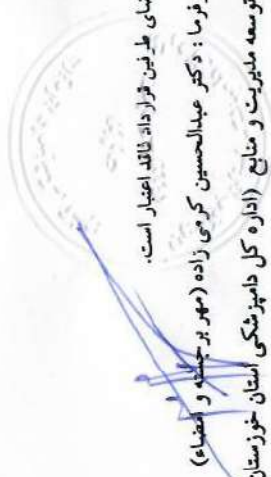 ضای طرفین قرارداد فاقد اعتبار است.
رفرما : دکتر عبدالحسین کرمی زاده (مهر برجسته و امضاء)
توسعه مدیریت و منابع (اداره کل دامپزشکی استان خوزستان